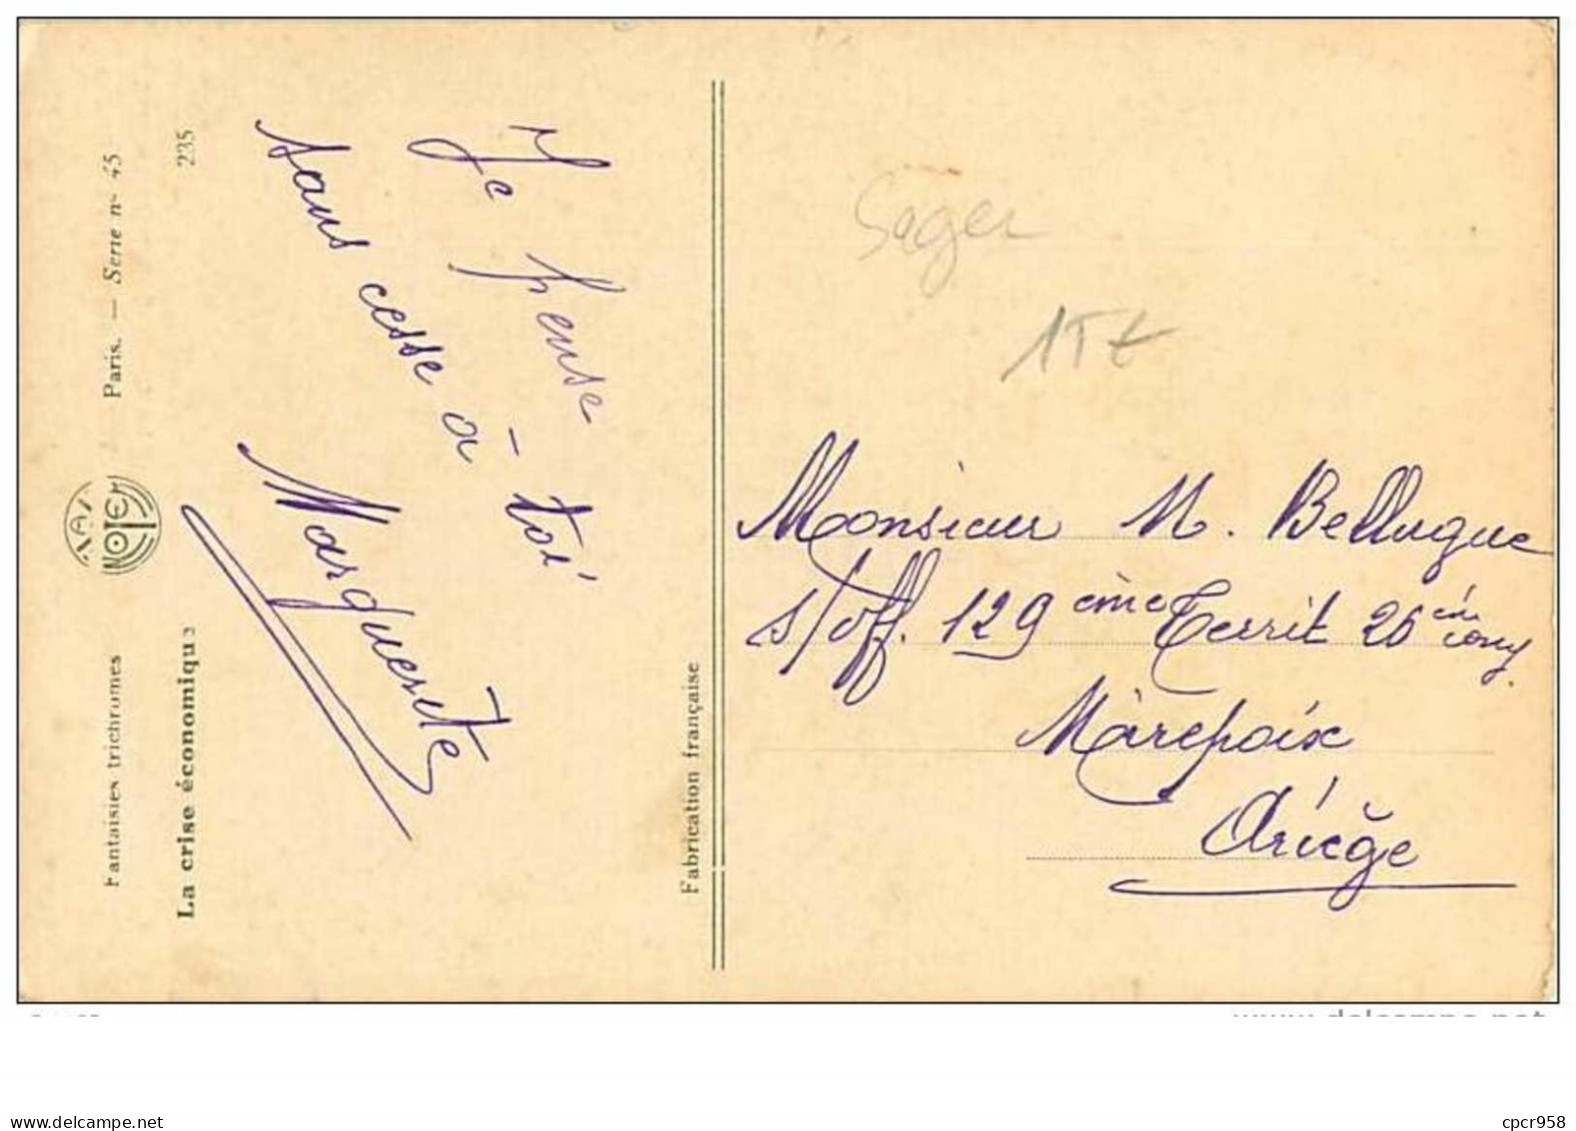 Fantaisies trichromes
NOYER
Paris. — Serie n° 45
La crise économique
235
Je pense
sans cesse à toi
Marguerite
Fabrication française
Sager
Monsieur M. Bellugue
s/off. 129 ème Territ 26 ème Cony.
Mirepoix
Ariège
www.delcampe.net
delcampe.net
cpcr958